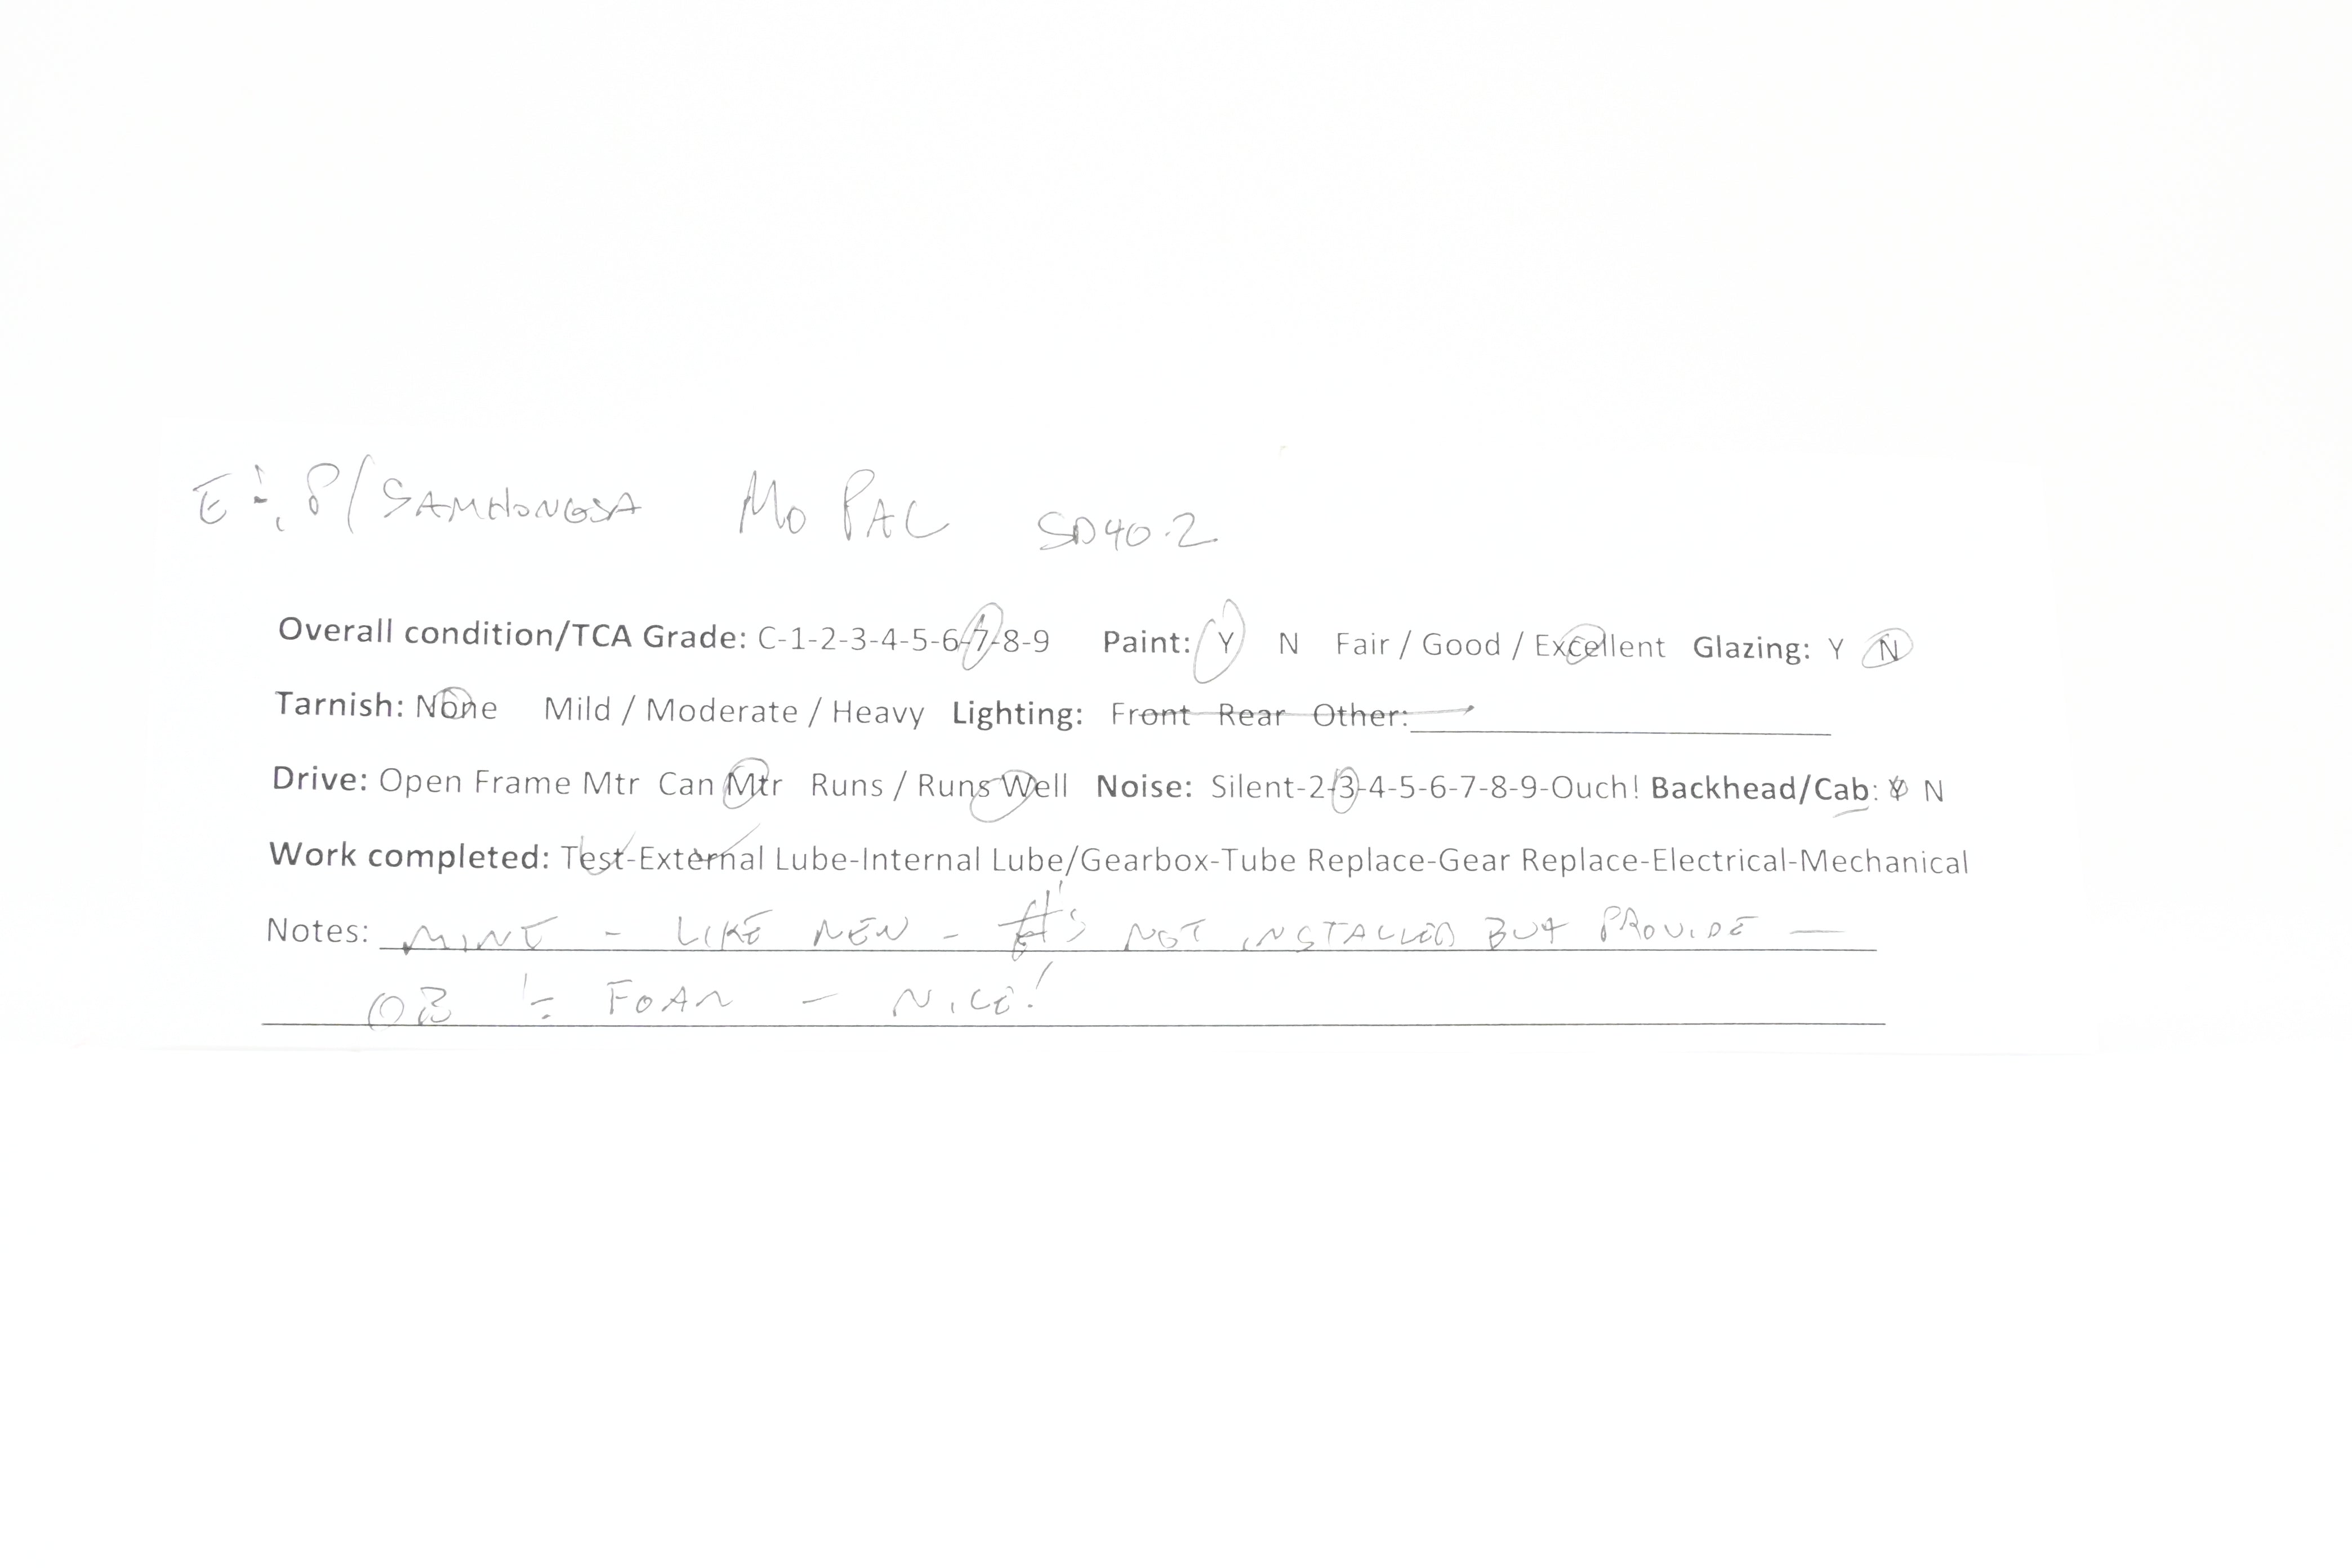 E÷P/SAMHONGSA MO PAC SD40-2
Overall condition/TCA Grade: C-1-2-3-4-5-6-7-8-9 Paint: Y N Fair / Good / Excellent Glazing: Y N
Tarnish: None Mild / Moderate / Heavy Lighting: Front Rear Other:
Drive: Open Frame Mtr Can Mtr Runs / Runs Well Noise: Silent-2-3-4-5-6-7-8-9-Ouch! Backhead/Cab: Y N
Work completed: Test-External Lube-Internal Lube/Gearbox-Tube Replace-Gear Replace-Electrical-Mechanical
Notes: MINT - LIKE NEW - #'s NOT INSTALLED BUT PROVIDE —
OB ÷ FOAM - NICE!